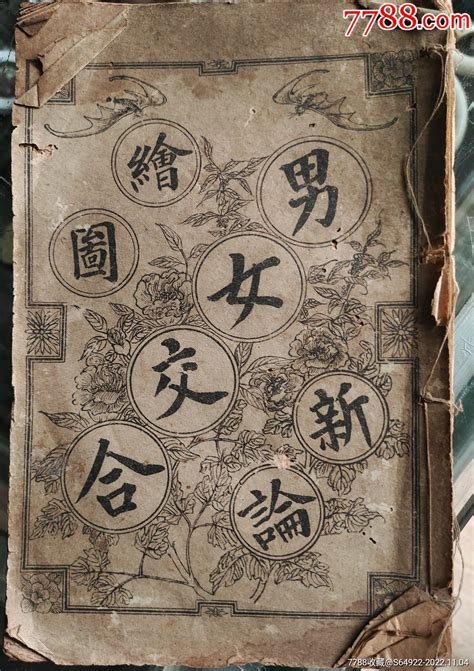 7788.com
繪圖
男女交合新論
7788收藏@S64922-2022.11.04